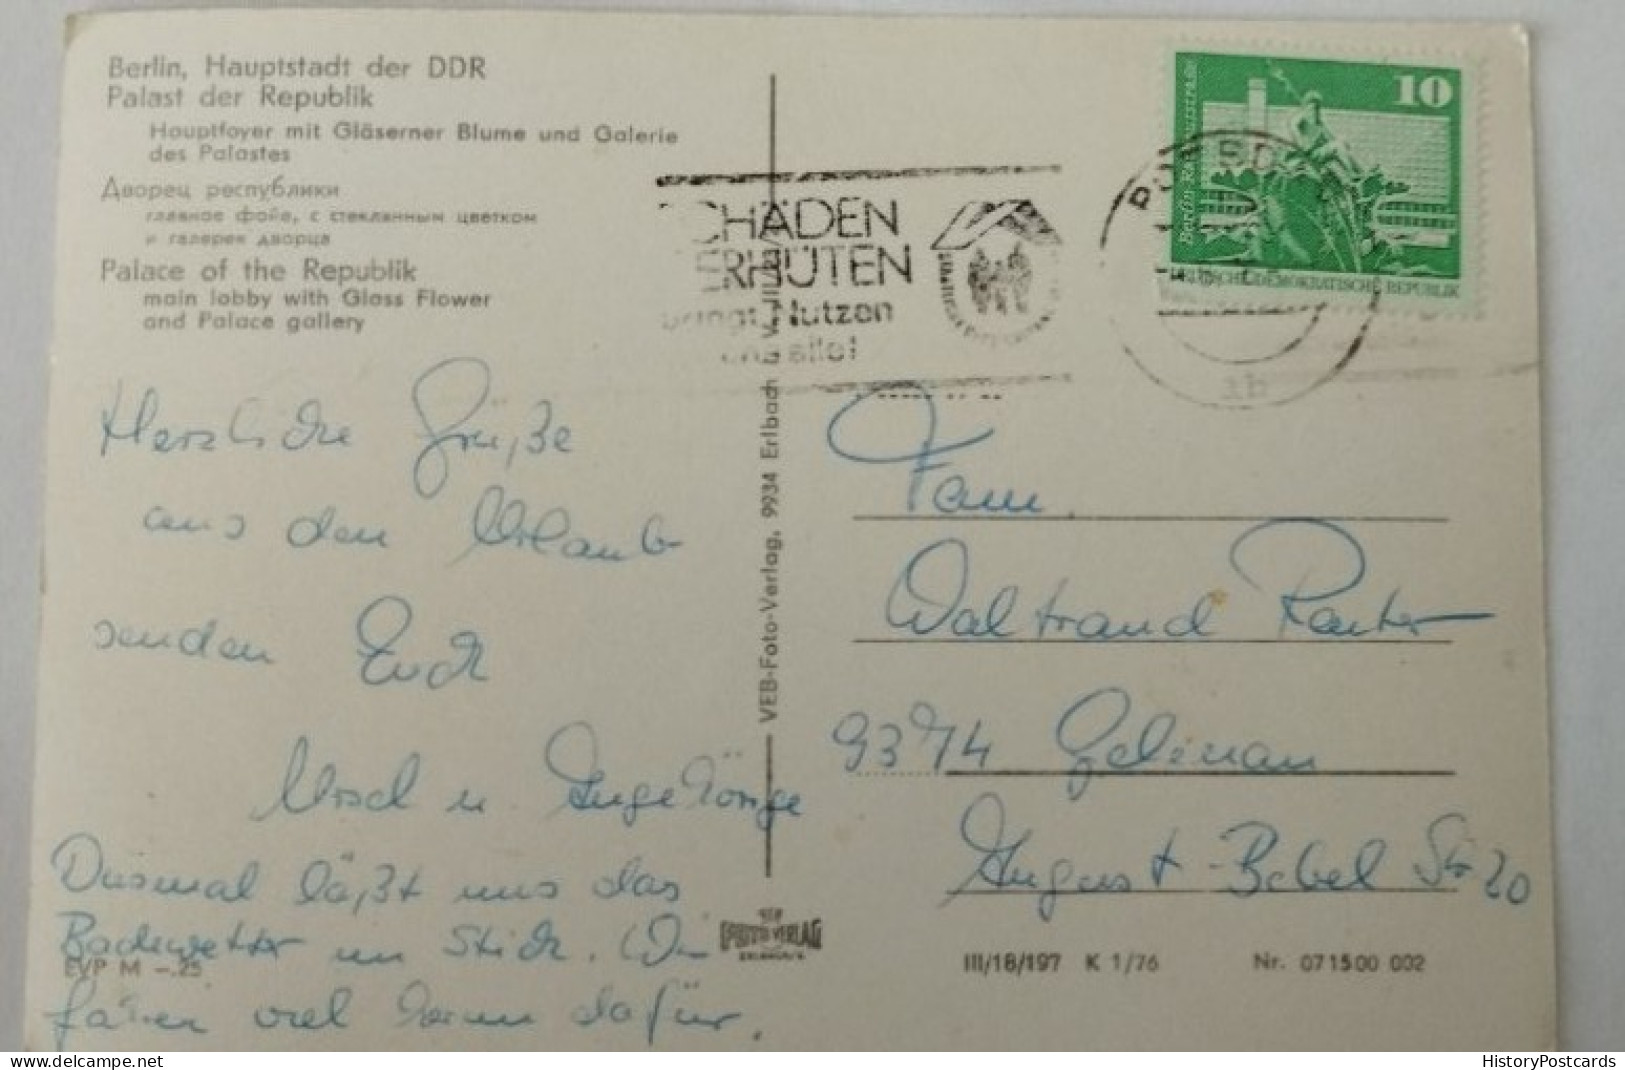 Berlin, Hauptstadt der DDR
Palast der Republik
Hauptfoyer mit Gläserner Blume und Galerie
des Palastes
Дворец республики
главное фойе, с стеклянным цветком
и галерея дворца
Palace of the Republik
main lobby with Glass Flower
and Palace gallery
Herzliche Grüße
aus dem Urlaub
senden Euch
Ursel u. Angehörige
Diesmal läßt uns das
Badewetter im Stich. Wir
fahren viel herum dafür.
EVP M -.25
VEB-Foto-Verlag, 9934 Erlbach
FOTO VERLAG
ERLBACH
SCHÄDEN
VERHÜTEN
bringt Nutzen
10
Berlin Rathausstraße
DEUTSCHE DEMOKRATISCHE REPUBLIK
ab
Fam.
Waltraud
9374 Gelenau
August-Bebel Str 20
III/18/197 K 1/76 Nr. 071500 002
HistoryPostcards
www.delcampe.net